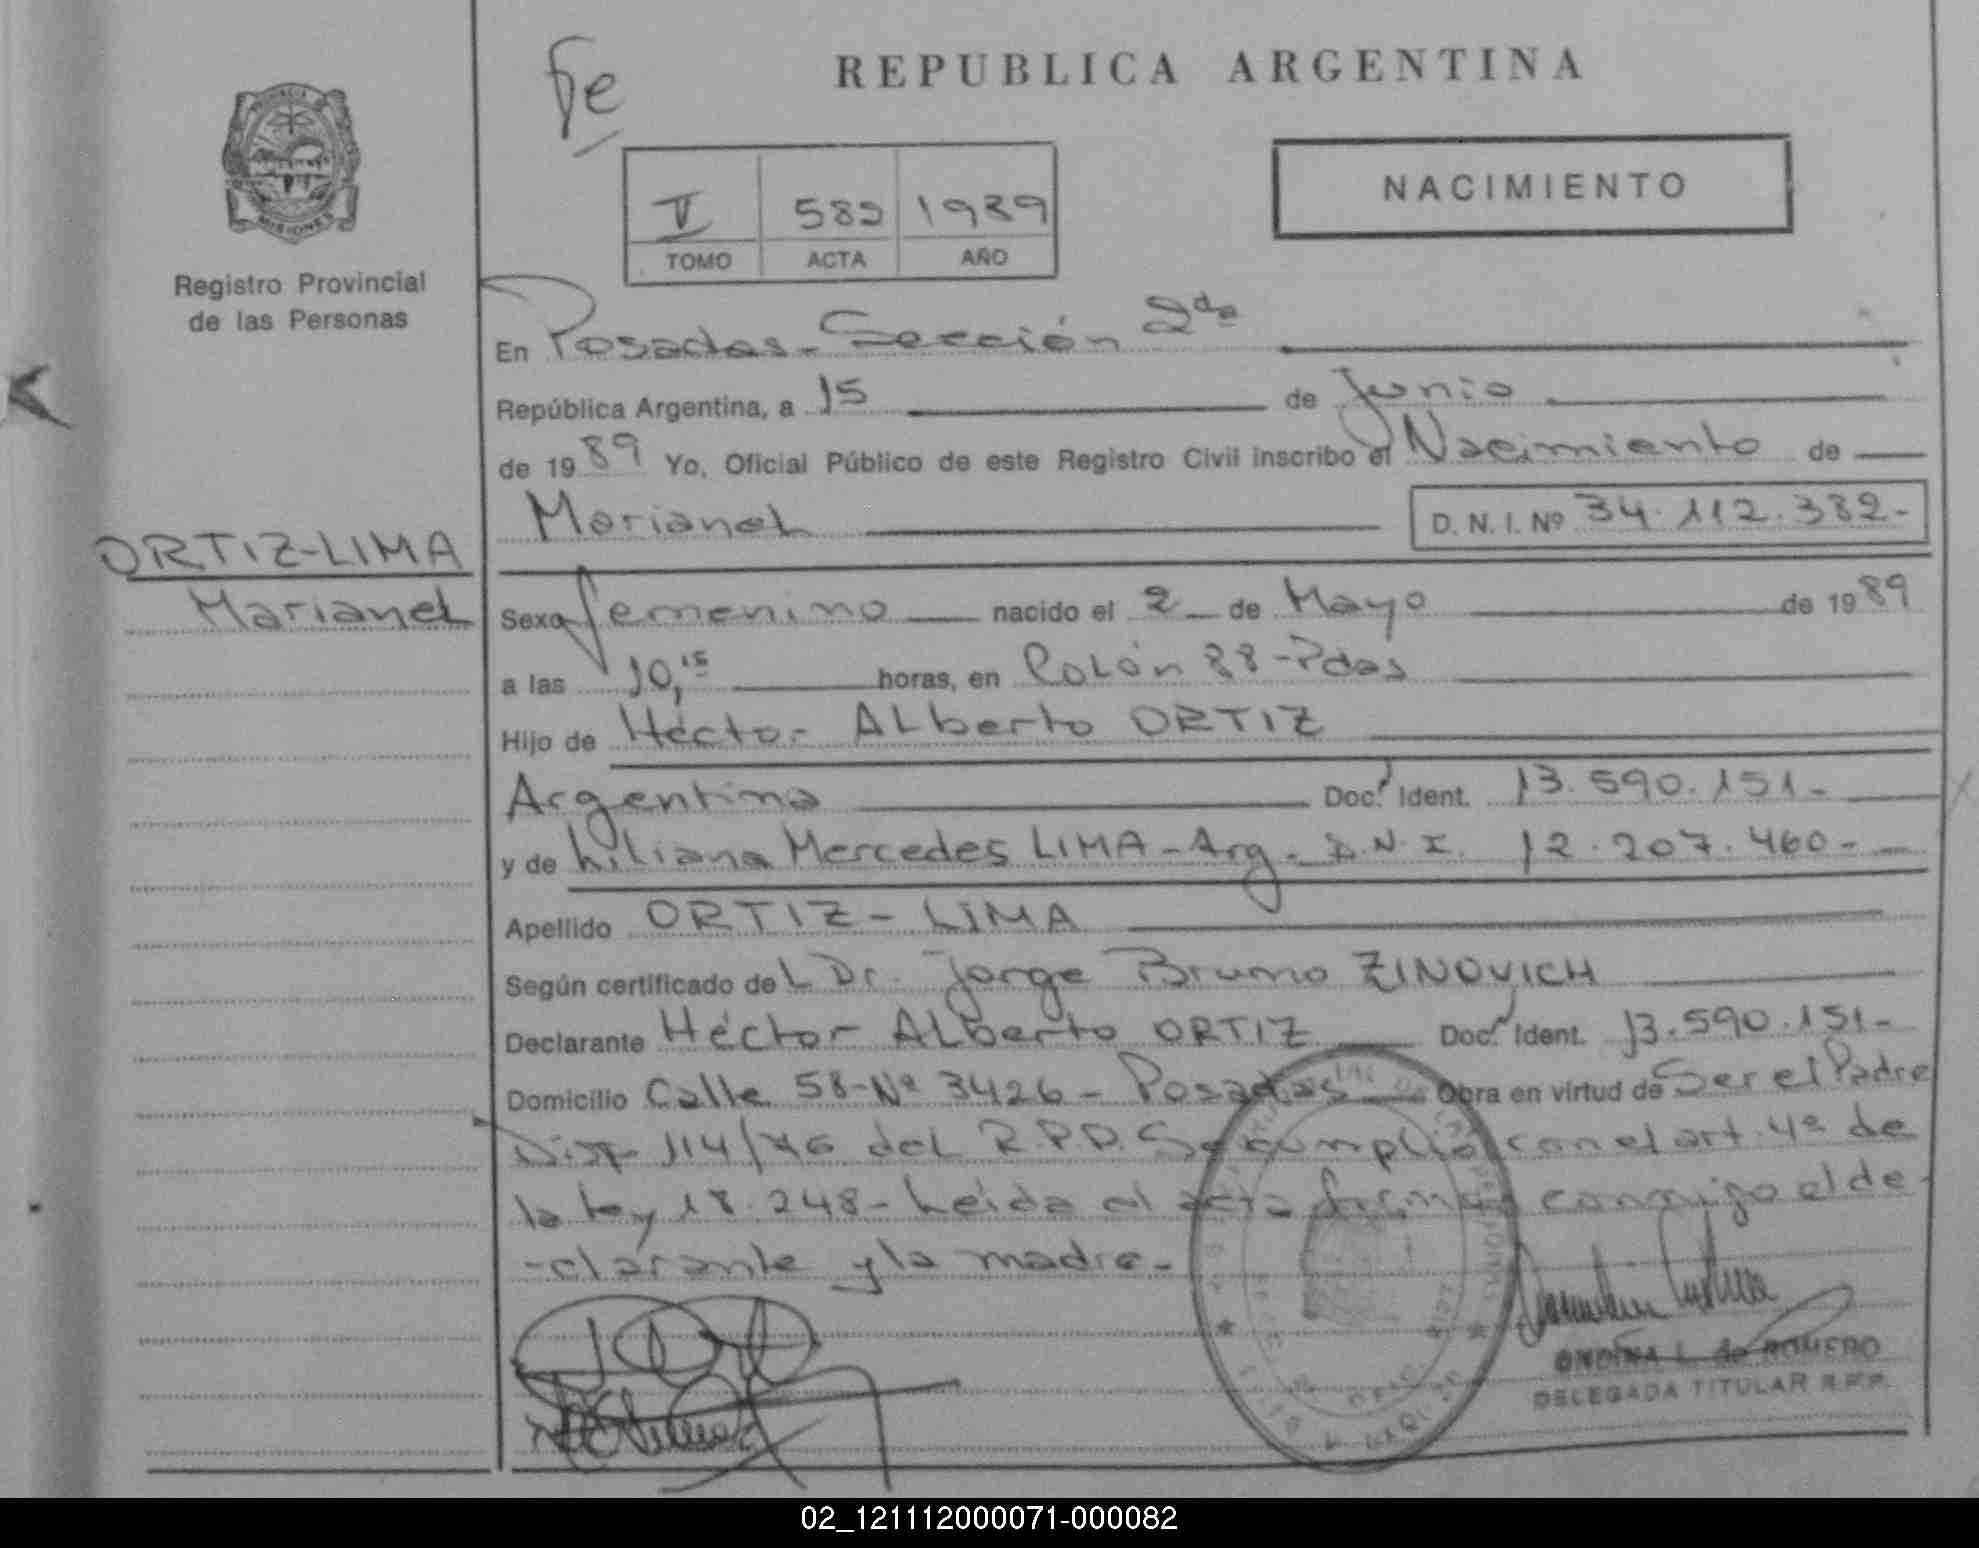 Fe
REPUBLICA ARGENTINA
NACIMIENTO
V 582 1989
TOMO ACTA AÑO
PROVINCIA DE
MISIONES
Registro Provincial
de las Personas
En Posadas - Sección 2da
República Argentina, a 15 de Junio
de 1989 Yo, Oficial Público de este Registro Civil inscribo el Nacimiento de
Marianel D. N. I. Nº 34.112.382-
ORTIZ-LIMA
Marianel
Sexo femenino nacido el 2 de Mayo de 1989
a las 10,15 horas, en Colón 88-Pdas
Hijo de Héctor Alberto ORTIZ
Argentino Doc. Ident. 13.590.151-
y de Liliana Mercedes LIMA - Arg - D.N.I. 12.207.460-
Apellido ORTIZ - LIMA
Según certificado del Dr. Jorge Bruno ZINOVICH
Declarante Héctor Alberto ORTIZ Doc. Ident. 13.590.151-
Domicilio Calle 58-Nº 3426 - Posadas Obra en virtud de Ser el Padre
Disp 114/76 del R.P.P. Se cumplió con el art. 4º de
la ley 18.248- Leída el acta firma conmigo el de-
-clarante y la madre.-
ONDINA L. de ROMERO
DELEGADA TITULAR R.P.P.
02_121112000071-000082